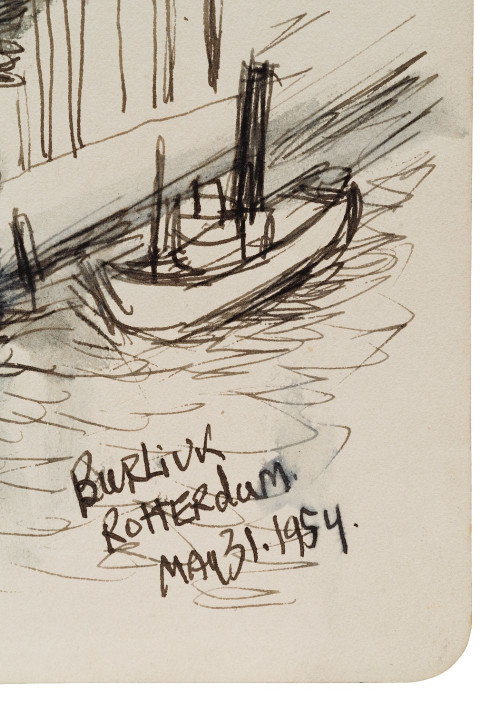 BURLiUK
ROTTERdaM.
MAY 31.1954.